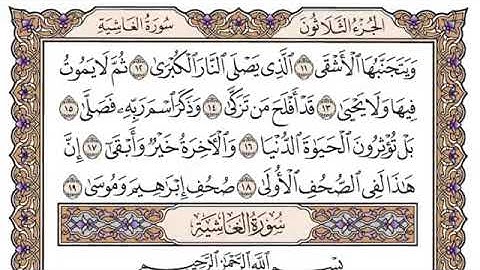 سُورَةُ الغَاشِيَةِ الجُزءُ الثَّلَاثُونَ
وَيَتَجَنَّبُهَا ٱلْأَشْقَى ١١ ٱلَّذِى يَصْلَى ٱلنَّارَ ٱلْكُبْرَىٰ ١٢ ثُمَّ لَا يَمُوتُ
فِيهَا وَلَا يَحْيَىٰ ١٣ قَدْ أَفْلَحَ مَن تَزَكَّىٰ ١٤ وَذَكَرَ ٱسْمَ رَبِّهِۦ فَصَلَّىٰ ١٥
بَلْ تُؤْثِرُونَ ٱلْحَيَوٰةَ ٱلدُّنْيَا ١٦ وَٱلْأٓخِرَةُ خَيْرٌ وَأَبْقَىٰٓ ١٧ إِنَّ
هَٰذَا لَفِى ٱلصُّحُفِ ٱلْأُولَىٰ ١٨ صُحُفِ إِبْرَٰهِيمَ وَمُوسَىٰ ١٩
سُورَةُ الغَاشِيَةِ
بِسْمِ ٱللَّهِ ٱلرَّحْمَٰنِ ٱلرَّحِيمِ